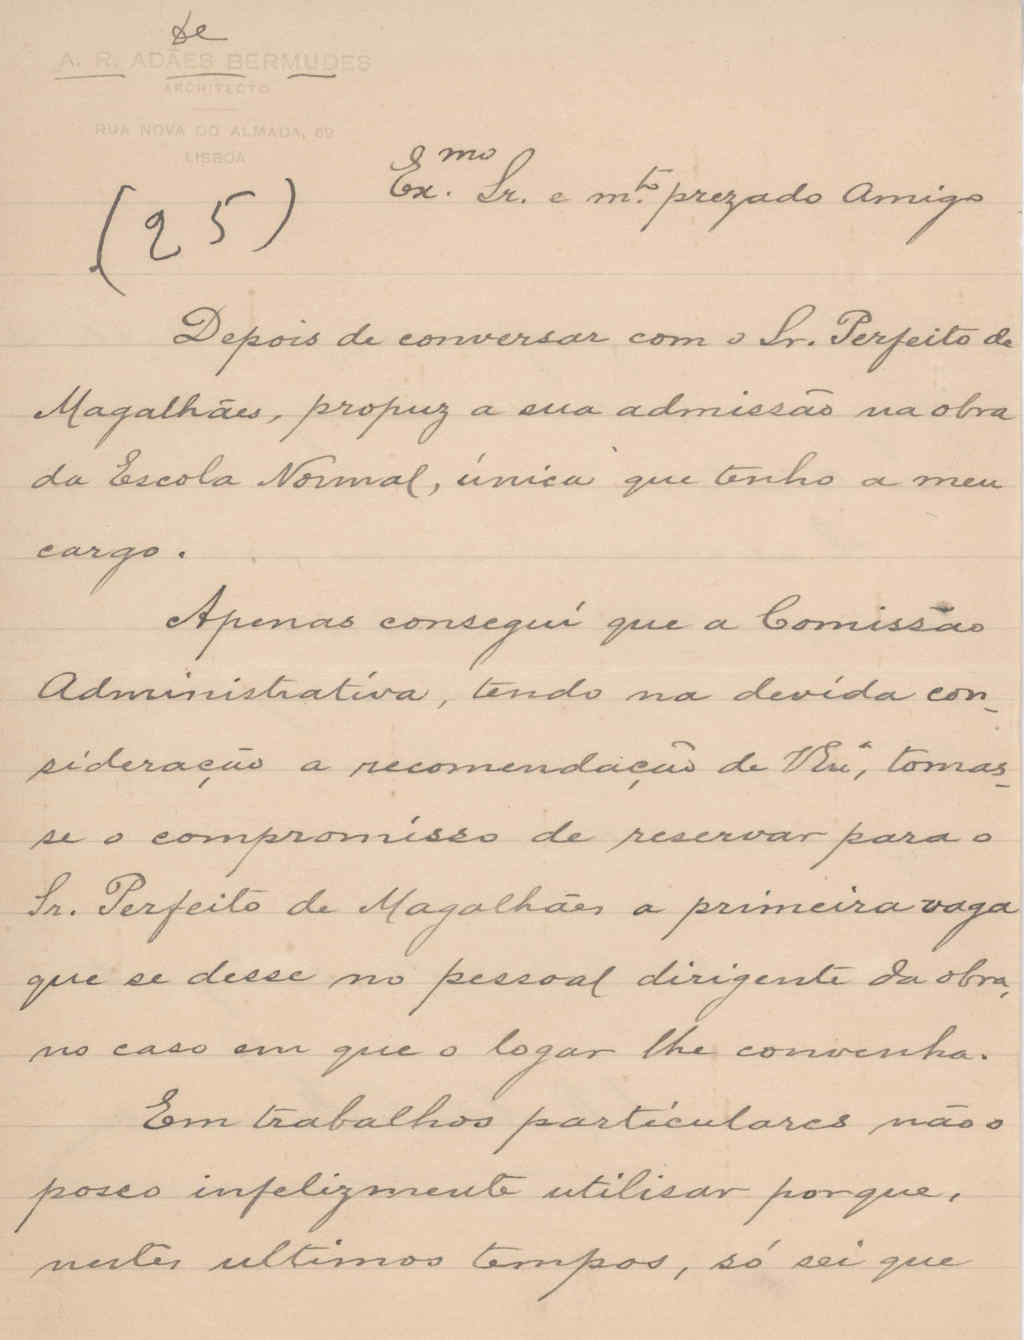 de
A. R. ADÃES BERMUDES
ARCHITECTO
RUA NOVA DO ALMADA, 69
LISBOA
(25)
Ex.mo Sr. e m.to prezado Amigo
Depois de conversar com o Sr. Perfeito de
Magalhães, propuz a sua admissão na obra
da Escola Normal, única que tenho a meu
cargo.
Apenas conseguí que a Comissão
Administratíva, tendo na devída con-
sideração a recomendação de V. Ex.ª, tomas-
se o compromísso de reservar para o
Sr. Perfeito de Magalhães a primeira vaga
que se desse no pessoal dirigente da obra,
no caso em que o logar lhe convenha.
Em trabalhos partículares não o
posso infelizmente utilisar porque,
nestes ultimos tempos, só sei que